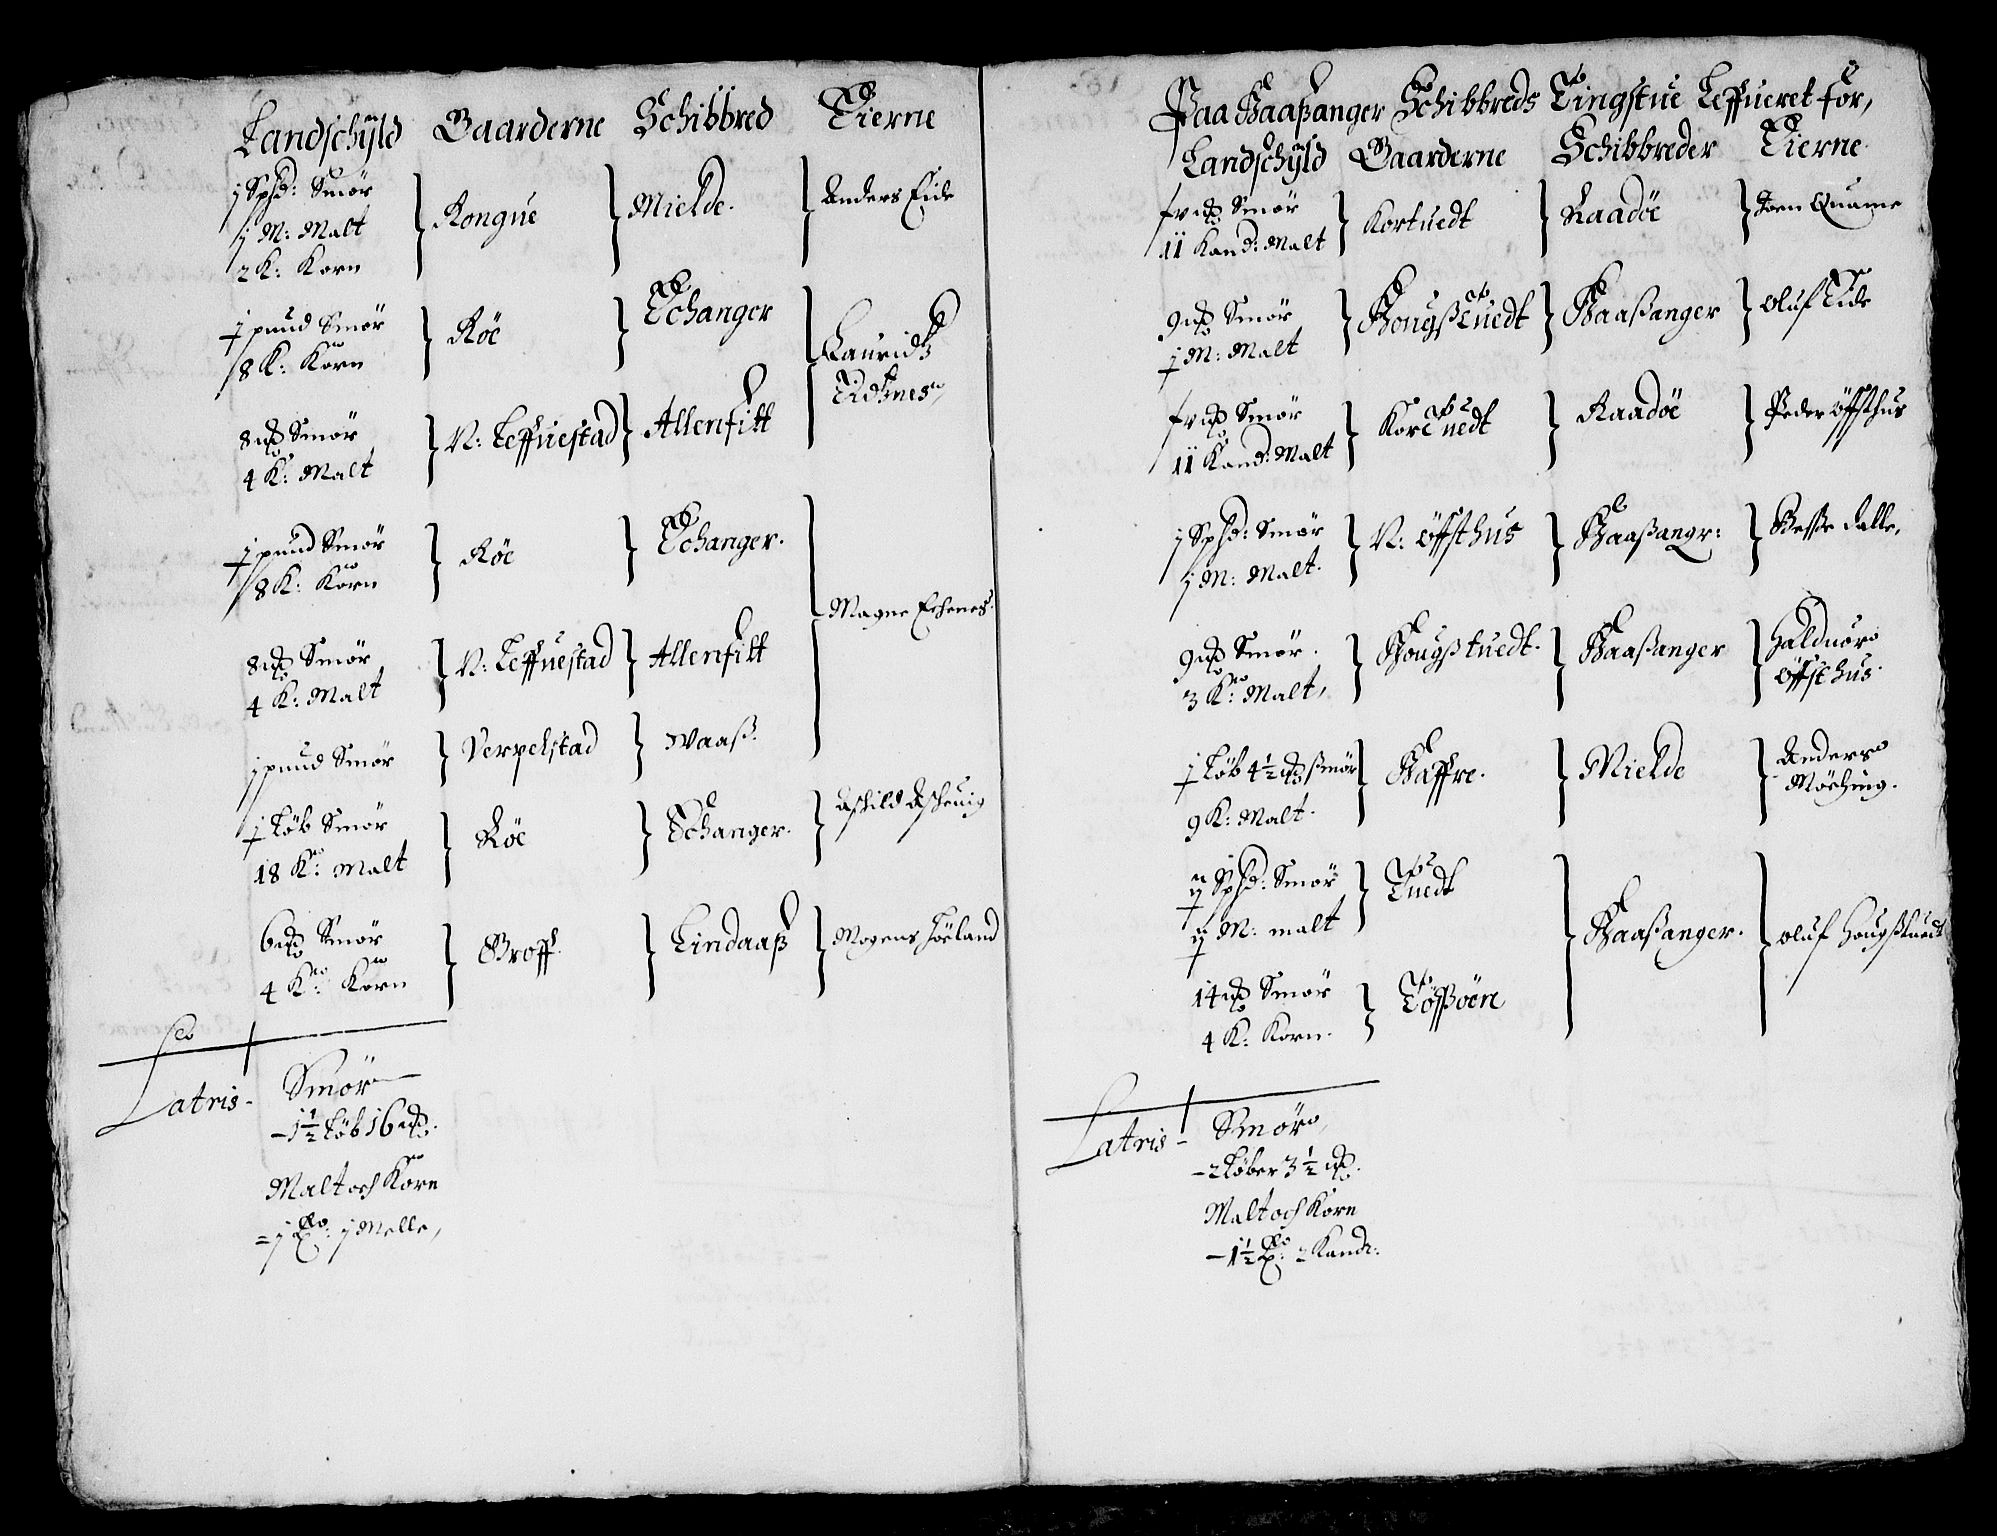 Landschÿld Gaarderne Schibbred Eierne
j Sphd: Smör
j M: Malt } Rongue } Mielde. } Anders Eide
2 K: Korn
½ pund Smör
8 K: Korn } Röe } Echanger } Lauridtz Eidtznes,
8 Smör
4 K: Malt } N: Leffuestad } Allenfitt
½ pund Smör
8 K: Korn } Röe } Echanger. } Magne Echenes.
8 Smör
4 K: Malt } N: Leffuestad } Allenfitt
j pund Smör } Verpelstad } Waaß.
½ Löb Smör
18 K: Malt } Röe } Echanger. } Aschild Ascheuig
6 Smör
4 K: Korn } Groff. } Lindaaß } Mogens Höeland
Latris - Smör
- 1½ Löb 16
Malt och Korn
= j j Melle,
Paa Haaßanger Schibbreds Tingstue Leffueret for,
Landschÿld Gaarderne Schibbreder Eierne.
Smör
11 Kand: Malt } Kortuedt } Raadöe } Joen Quame
9 Smör
½ M: Malt } Hougßtuedt } Haaßanger } Oluf Eide
Smör
11 Kand: Malt } Kortuedt } Raadöe } Peder Öffsthus
j Sphd: Smör
j M: Malt. } N: Öffsthus } Haaßangr: } Dalle,
9 Smör.
3 K: Malt, } Hougßtuedt. } Haaßanger } Halduor Öffsthus.
½ Löb 4½ Smör
9 K: Malt. } Haffre. } Mielde } Anders Möching.
Sphd: Smör
M: malt } Tuedt } Haaßanger. } Oluf Hougßtuedt
14 Smör
4 K: Korn. } Tößöen
Latris - Smör,
- 2 Löber 3½
Malt och Korn
- 1½ 2 Kande: